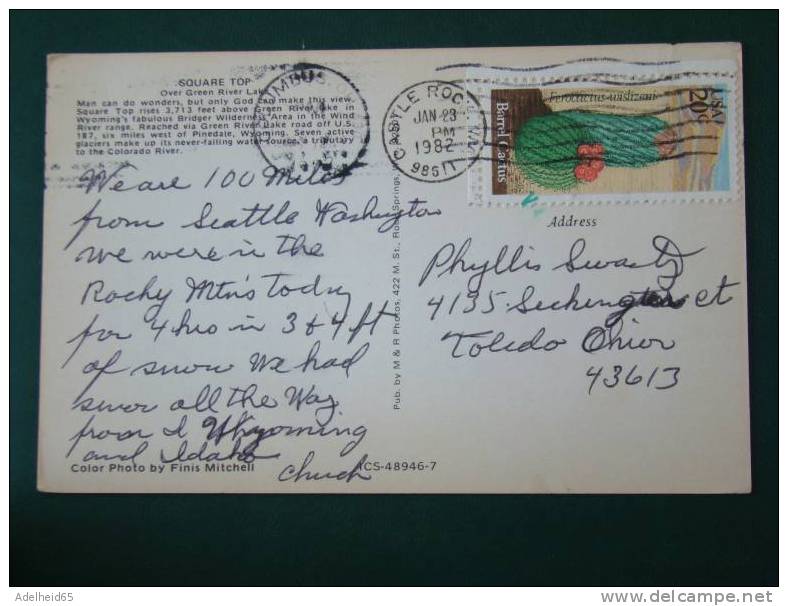 SQUARE TOP
Over Green River Lake
Man can do wonders, but only God can make this view.
Square Top rises 3,713 feet above Green River Lake in
Wyoming's fabulous Bridger Wilderness Area in the Wind
River range. Reached via Green River Lake road off U.S.
187, six miles west of Pinedale, Wyoming. Seven active
glaciers make up its never-failing water source, a tributary
to the Colorado River.
We are 100 Miles
from Seattle Washington
we were in the
Rocky Mtn's Today
for 4 hrs in 3 & 4 ft
of snow We had
snow all the Way
from I Wyoming
and Idaho
Chuck
Color Photo by Finis Mitchell
ICS-48946-7
Pub. by M & R Photos, 422 M. St., Rock Springs,
CASTLE ROCK, WA
JAN 23
PM
1982
98611
Ferocactus wislizeni
Barrel Cactus
USA
20c
Address
Phyllis Swartz
4135 ct
Toledo Ohio
43613
Adelheid65
www.delcampe.net